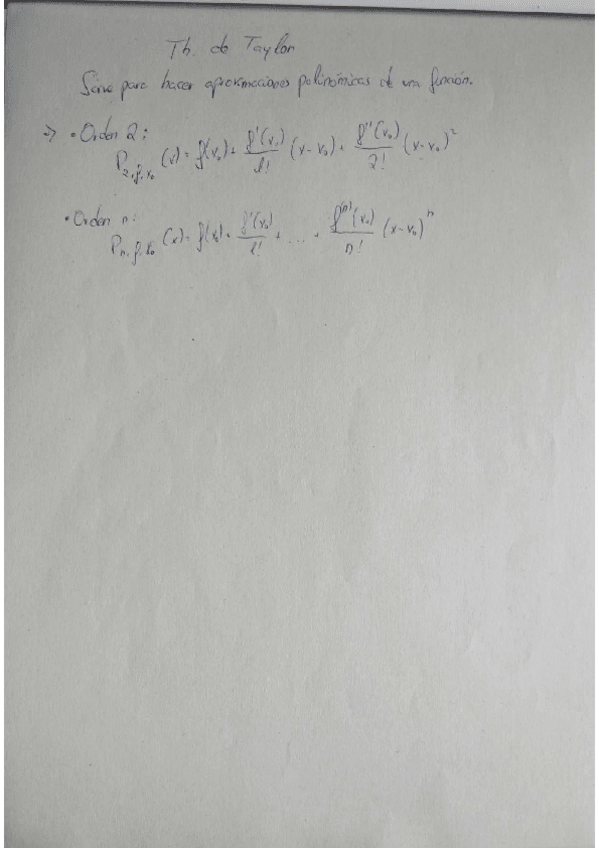 Th. de Taylor
Sirve para hacer aproximaciones polinómicas de una función.
=> • Orden 2:
P₂,f,x₀ (x) = f(x₀) + f'(x₀)/1! (x-x₀) + f''(x₀)/2! (x-x₀)²
• Orden n:
Pₙ,f,x₀ (x) = f(x₀) + f'(x₀)/1! + ... + f⁽ⁿ⁾(x₀)/n! (x-x₀)ⁿ